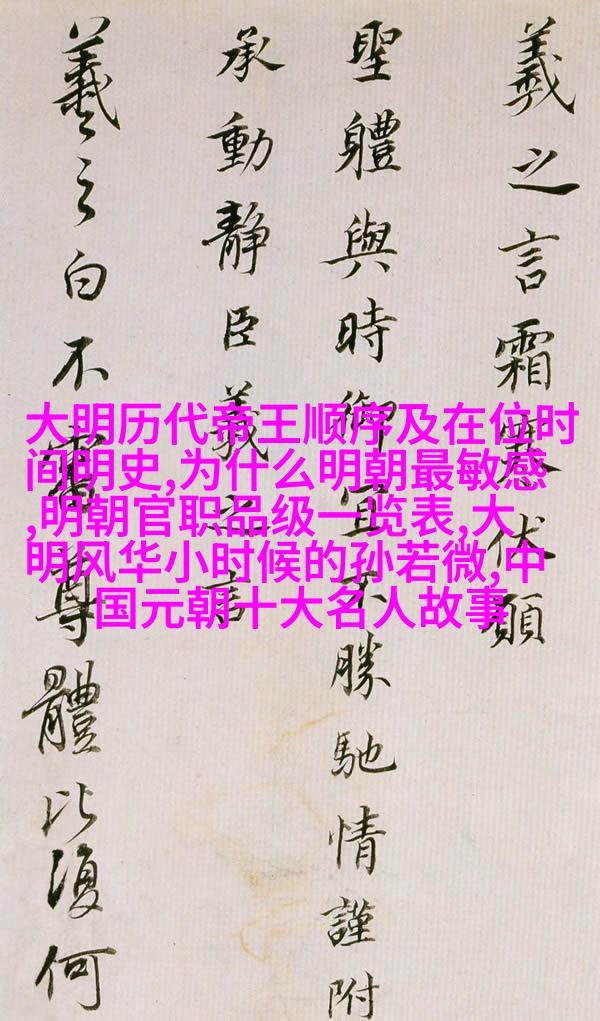 羲之言霜寒伏願
聖體與時御宜不勝馳情謹附
承動靜臣羲之言
羲之白不審尊體比復何
大明历代帝王顺序及在位时
间明史,为什么明朝最敏感
,明朝官职品级一览表,大
明风华小时候的孙若微,中
国元朝十大名人故事